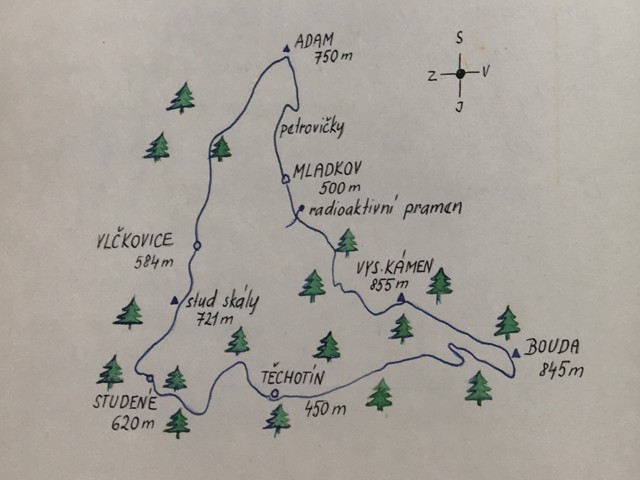 ADAM
750m
S
Z
V
J
petrovičky
MLADKOV
500m
radioaktivní pramen
VLČKOVICE
584m
VYS.KÁMEN
855m
stud skály
721m
BOUDA
845m
TĚCHOTÍN
450m
STUDENÉ
620m